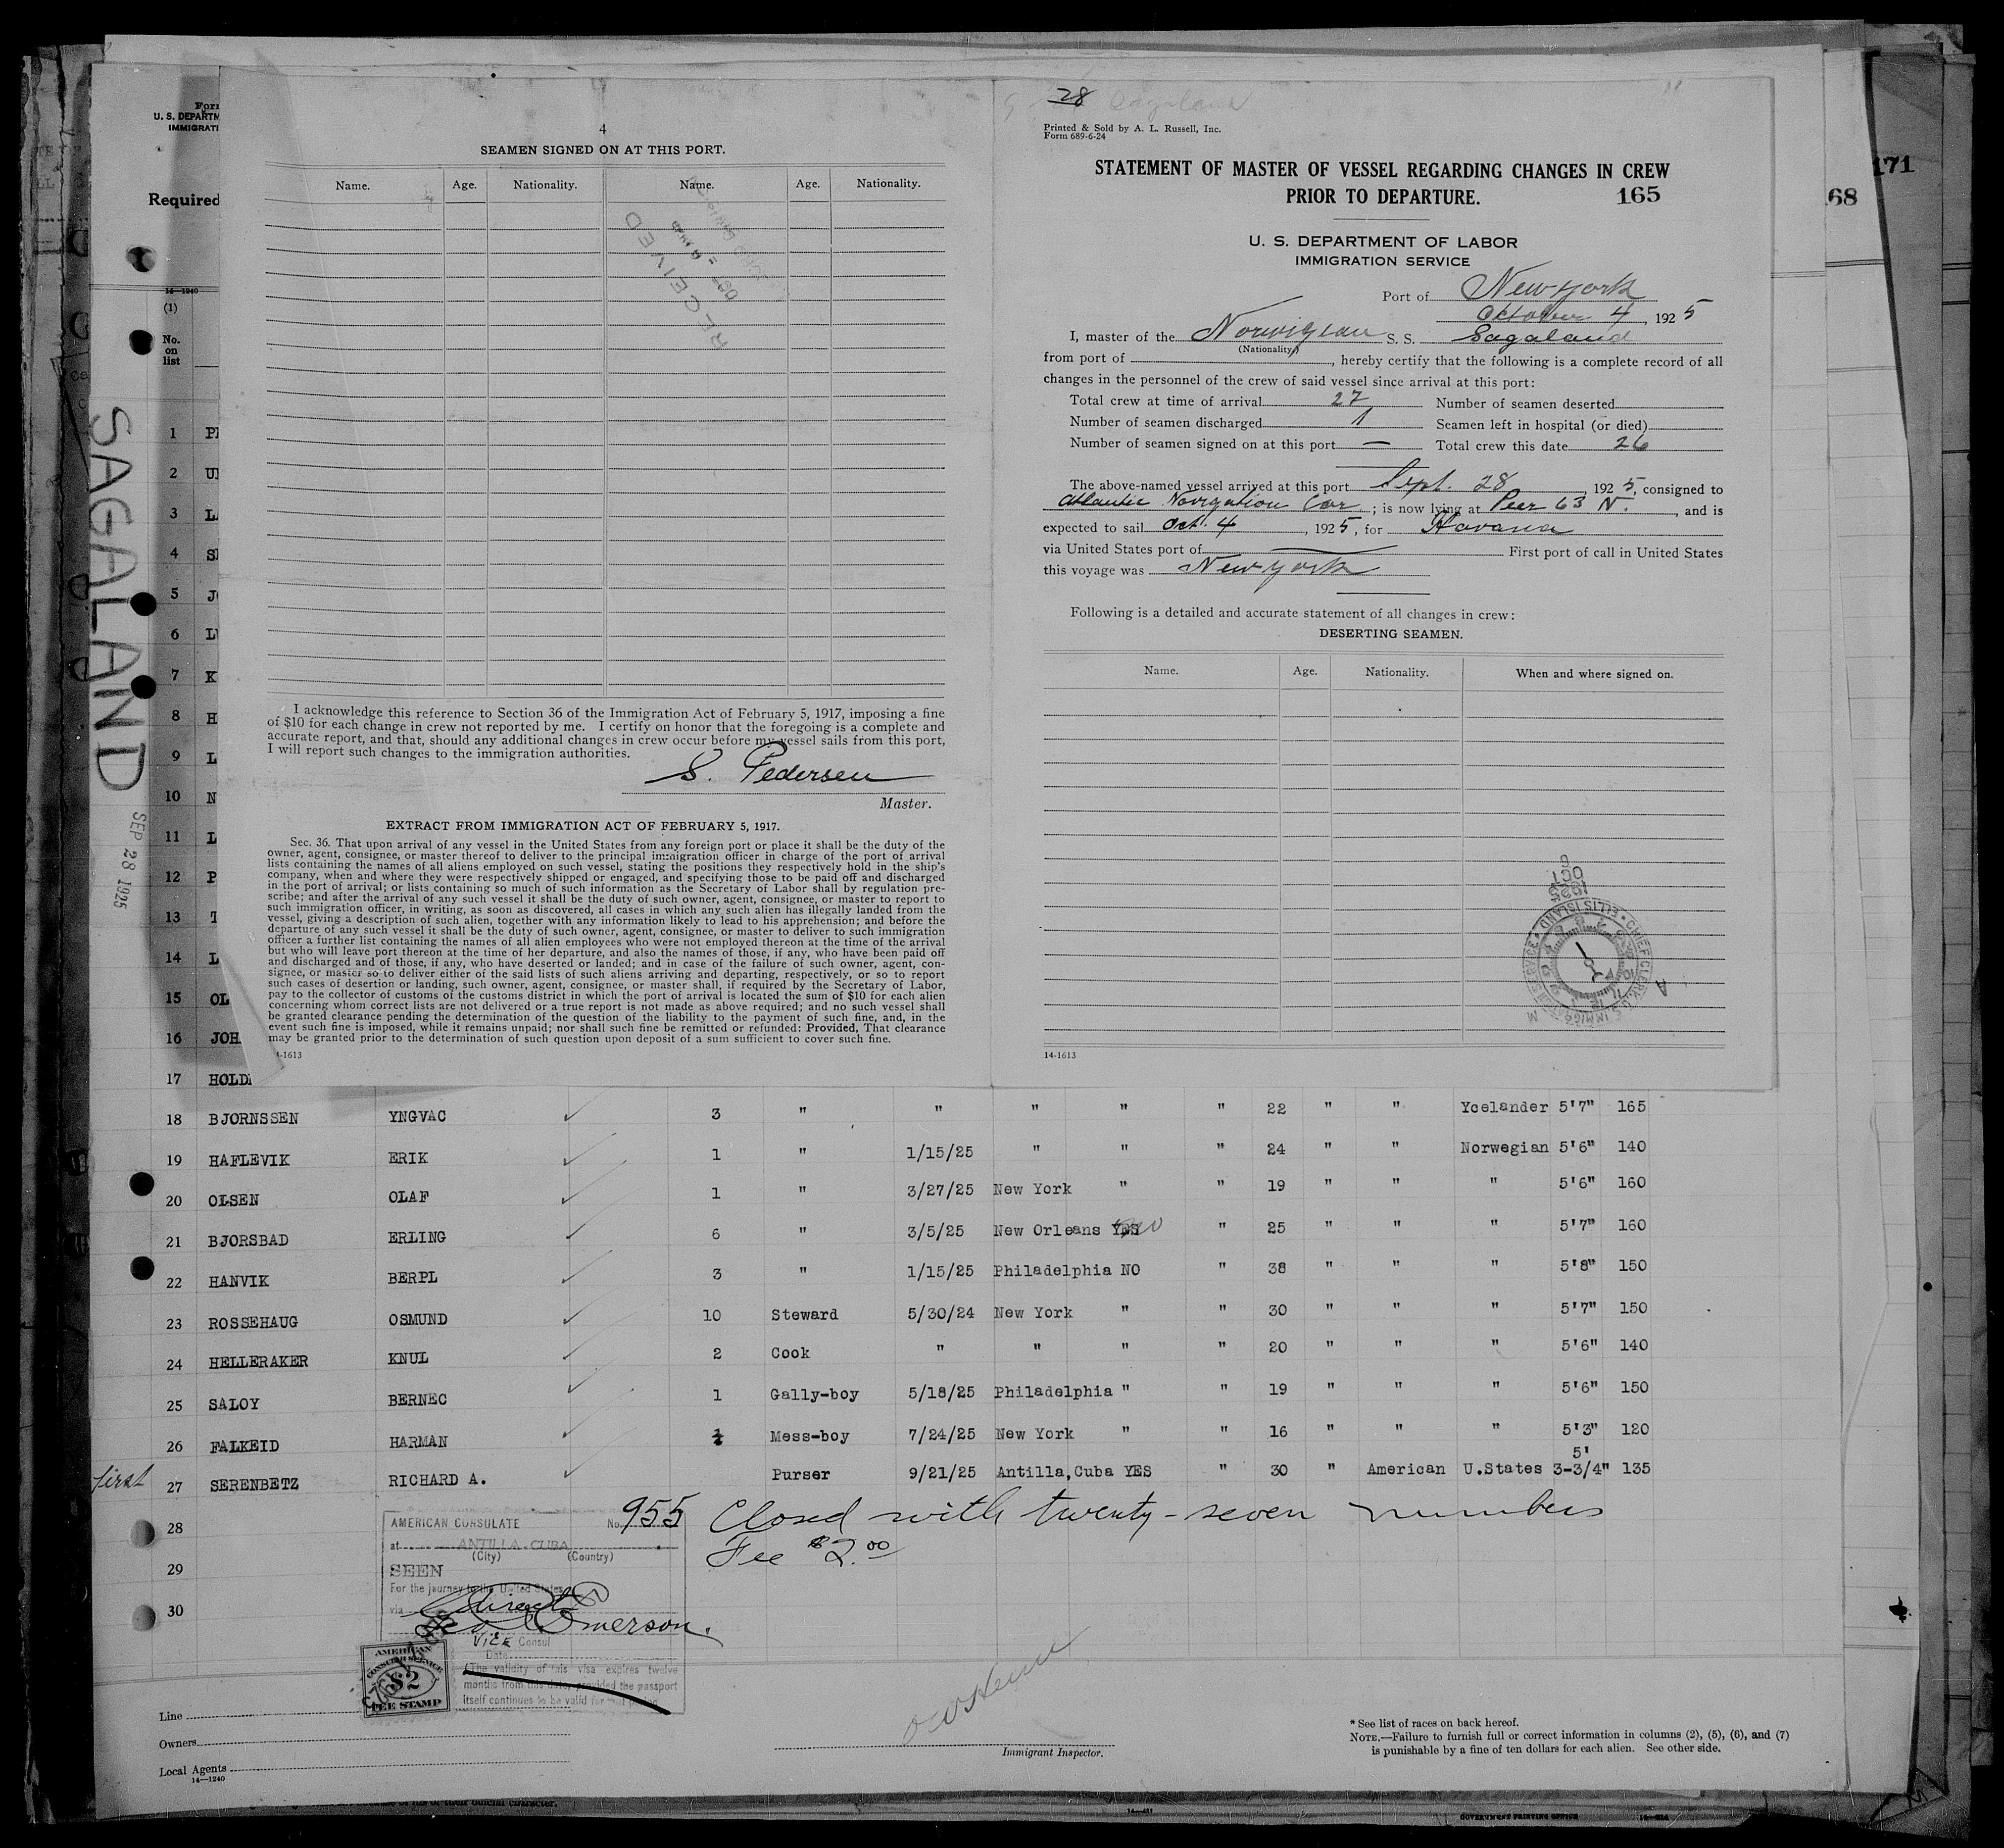 171
68
Form
U. S. DEPARTM
IMMIGRATI
Required
14—1240
(1)
No.
on
list
SAGALAND
SEP 28 1925
1 PE
2 UL
3 LA
4 SE
5 JO
6 LU
7 K
8 H
9 L
10 N
11 L
12 P
13 T
14 L
15 OL
16 JOH
17 HOLD
4
SEAMEN SIGNED ON AT THIS PORT.
Name. Age. Nationality. Name. Age. Nationality.
RECEIVED
I acknowledge this reference to Section 36 of the Immigration Act of February 5, 1917, imposing a fine
of $10 for each change in crew not reported by me. I certify on honor that the foregoing is a complete and
accurate report, and that, should any additional changes in crew occur before my vessel sails from this port,
I will report such changes to the immigration authorities.
S. Pedersen
Master.
EXTRACT FROM IMMIGRATION ACT OF FEBRUARY 5, 1917.
Sec. 36. That upon arrival of any vessel in the United States from any foreign port or place it shall be the duty of the
owner, agent, consignee, or master thereof to deliver to the principal immigration officer in charge of the port of arrival
lists containing the names of all aliens employed on such vessel, stating the positions they respectively hold in the ship's
company, when and where they were respectively shipped or engaged, and specifying those to be paid off and discharged
in the port of arrival; or lists containing so much of such information as the Secretary of Labor shall by regulation pre-
scribe; and after the arrival of any such vessel it shall be the duty of such owner, agent, consignee, or master to report to
such immigration officer, in writing, as soon as discovered, all cases in which any such alien has illegally landed from the
vessel, giving a description of such alien, together with any information likely to lead to his apprehension; and before the
departure of any such vessel it shall be the duty of such owner, agent, consignee, or master to deliver to such immigration
officer a further list containing the names of all alien employees who were not employed thereon at the time of the arrival
but who will leave port thereon at the time of her departure, and also the names of those, if any, who have been paid off
and discharged and of those, if any, who have deserted or landed; and in case of the failure of such owner, agent, con-
signee, or master so to deliver either of the said lists of such aliens arriving and departing, respectively, or so to report
such cases of desertion or landing, such owner, agent, consignee, or master shall, if required by the Secretary of Labor,
pay to the collector of customs of the customs district in which the port of arrival is located the sum of $10 for each alien
concerning whom correct lists are not delivered or a true report is not made as above required; and no such vessel shall
be granted clearance pending the determination of the question of the liability to the payment of such fine, and, in the
event such fine is imposed, while it remains unpaid; nor shall such fine be remitted or refunded: Provided, That clearance
may be granted prior to the determination of such question upon deposit of a sum sufficient to cover such fine.
4-1613
28 Sagaland
Printed & Sold by A. L. Russell, Inc.
Form 689-6-24
STATEMENT OF MASTER OF VESSEL REGARDING CHANGES IN CREW
PRIOR TO DEPARTURE. 165
U. S. DEPARTMENT OF LABOR
IMMIGRATION SERVICE
Port of New York
October 4, 1925
I, master of the Norwigian S. S. Sagaland
(Nationality)
from port of , hereby certify that the following is a complete record of all
changes in the personnel of the crew of said vessel since arrival at this port:
Total crew at time of arrival 27 Number of seamen deserted
Number of seamen discharged 1 Seamen left in hospital (or died)
Number of seamen signed on at this port — Total crew this date 26
The above-named vessel arrived at this port Sept. 28, 1925, consigned to
Atlantic Navigation Cor ; is now lying at Peer 63 N. , and is
expected to sail Oct. 4, 1925, for Havana
via United States port of — First port of call in United States
this voyage was New York
Following is a detailed and accurate statement of all changes in crew:
DESERTING SEAMEN.
Name. Age. Nationality. When and where signed on.
1925
OCT
6
CHIEF CLERK, U.S. IMMIGRATION SERVICE • ELLIS ISLAND
14-1613
18 BJORNSSEN YNGVAC 3 " " " " " 22 " " Ycelander 5'7" 165
19 HAFLEVIK ERIK 1 " 1/15/25 " " " 24 " " Norwegian 5'6" 140
20 OLSEN OLAF 1 " 3/27/25 New York " " 19 " " " 5'6" 160
21 BJORSBAD ERLING 6 " 3/5/25 New Orleans YES NO " 25 " " " 5'7" 160
22 HANVIK BERPL 3 " 1/15/25 Philadelphia NO " 38 " " " 5'8" 150
23 ROSSEHAUG OSMUND 10 Steward 5/30/24 New York " " 30 " " " 5'7" 150
24 HELLERAKER KNUL 2 Cook " " " " 20 " " " 5'6" 140
25 SALOY BERNEC 1 Gally-boy 5/18/25 Philadelphia " " 19 " " " 5'6" 150
26 FALKEID HARMAN 1 Mess-boy 7/24/25 New York " " 16 " " " 5'3" 120
first 27 SERENBETZ RICHARD A. Purser 9/21/25 Antilla,Cuba YES " 30 " American U.States 5' 3-3/4" 135
28
29
30
AMERICAN CONSULATE No. 955
at ANTILLA-CUBA
(City) (Country)
SEEN
For the journey to the United States
via Direct
Geo Emerson.
VICE Consul
Date
(The validity of this visa expires twelve
months from this date, provided the passport
itself continues to be valid for that period.
AMERICAN
CONSULAR SERVICE
$2
FEE STAMP
Closed with twenty-seven numbers
Fee $2.00
Line
Owners
Local Agents
14—1240
Immigrant Inspector.
* See list of races on back hereof.
NOTE.—Failure to furnish full or correct information in columns (2), (5), (6), and (7)
is punishable by a fine of ten dollars for each alien. See other side.
GOVERNMENT PRINTING OFFICE